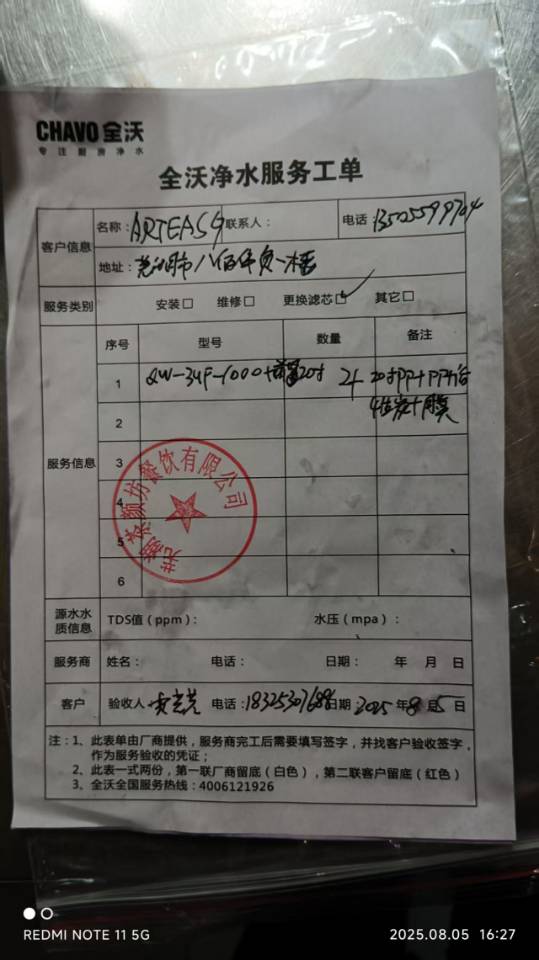 CHAVO 全沃
专注厨房净水
全沃净水服务工单
客户信息
名称：ARTEASG 联系人： 电话
地址：芜湖市八佰伴负一楼
服务类别 安装□ 维修□ 更换滤芯□✓ 其它□
服务信息
序号 型号 数量 备注
1 QW-3UF-1000+前置20寸 20寸PP+PP
2
3
4
5
6
芜湖茶颜坊餐饮有限公司
源水水质信息 TDS值（ppm）： 水压（mpa）：
服务商 姓名： 电话： 日期： 年 月 日
客户 验收人 电话：18325307688 日期：2025年8月5日
注：1、此表单由厂商提供，服务商完工后需要填写签字，并找客户验收签字，
作为服务验收的凭证；
2、此表一式两份，第一联厂商留底（白色），第二联客户留底（红色）
3、全沃全国服务热线：4006121926
REDMI NOTE 11 5G
2025.08.05 16:27